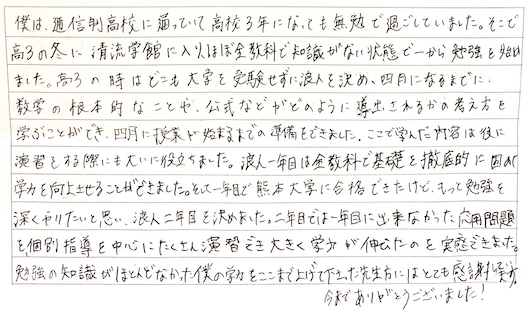 僕は、通信制高校に通っていて高校3年になっても無勉で過ごしていました。そこで
高3の冬に清流学館に入りほぼ全教科で知識がない状態で一から勉強を始め
ました。高3の時はどこも大学を受験せずに浪人を決め、四月になるまでに、
数学の根本的なことや、公式などがどのように導出されるかの考え方を
学ぶことができ、四月に授業が始まるまでの準備をできました。ここで学んだ内容は後に
演習をする際にも大いに役立ちました。浪人一年目は全教科で基礎を徹底的に固めて
学力を向上させることができました。そして一年目で熊本大学に合格できたけど、もっと勉強を
深くやりたいと思い、浪人二年目を決めました。二年目では一年目に出来なかった応用問題
を個別指導を中心にたくさん演習でき大きく学力が伸びたのを実感できました。
勉強の知識がほとんどなかった僕の学力をここまで上げて下さった先生方にはとても感謝しています。
今までありがとうございました!